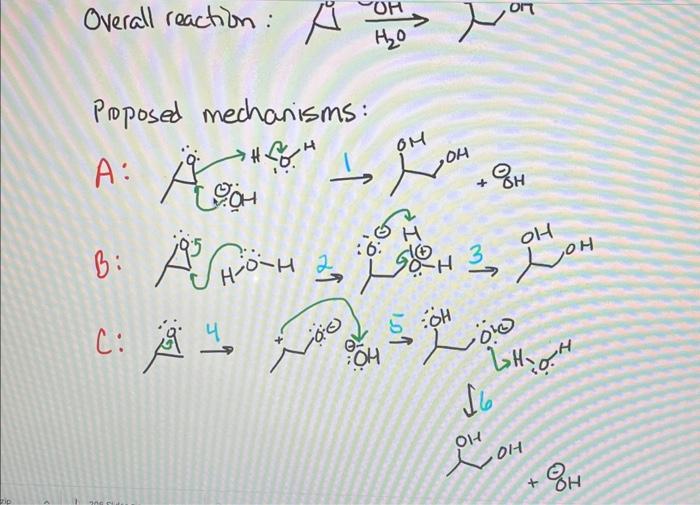 Overall reaction: OH OH
H2O
Proposed mechanisms:
A: :O: H-O-H 1 OH OH + ⊖OH
⊖:OH
B: :O: 5 H-O-H 2 :O:⊖ H O⊕-H 3 OH OH
C: :O: 4 + :O:⊖ ⊖:OH 5 :OH :O:⊖
H-O-H
6
OH OH + ⊖OH